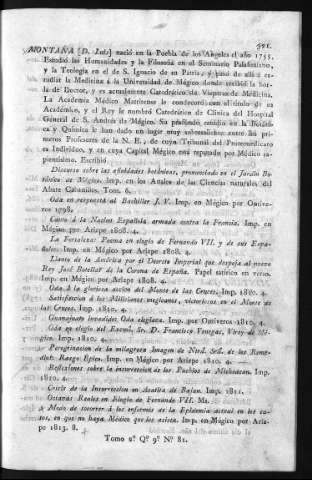 591.
MONTAÑA [D. Luis] nació en la Puebla de los Angeles el año 1755.
Estudió las Humanidades y la Filosofía en el Seminario Palafoxiano,
y la Teología en el de S. Ignacio de su Patria, y pasó de allí á es-
tudiar la Medicina á la Universidad de México donde recibió la bor-
la de Doctor, y es actualmente Catedrático de Vísperas de Medicina.
La Academia Médico Matritense le condecoró con el título de su
Académico, y el Rey le nombró Catedrático de Clínica del Hospital
General de S. Andres de México. Su profundo estudio en la Botáni-
ca y Química le han dado un lugar muy sobresaliente entre los pri-
meros Profesores de la N. E., de cuyo Tribunal del Protomedicato
es Individuo, y en cuya Capital México está reputado por Médico sa-
pientísimo. Escribió
Discurso sobre las afinidades botánicas, pronunciado en el Jardin Bo-
tánico de México. Imp. en los Anales de las Ciencias naturales del
Abate Cabanilles. Tom. 6.
Oda en respuesta al Bachiller J. V. Imp. en México por Ontive-
ros 1798.
Canto á la Nacion Española armada contra la Francia. Imp. en
México por Arizpe 1808. 4.
La Fortaleza: Poema en elogio de Fernando VII. y de sus Espa-
ñoles. Imp. en México por Arizpe 1808. 4.
Llanto de la América por el Decreto Imperial que despoja al nuevo
Rey José Botellas de la Corona de España. Papel satírico en verso.
Imp. en México por Arizpe 1808. 4.
Oda á la gloriosa accion del Monte de las Cruces. Imp. 1810. 4.
Satisfaccion á las Milicianas mexicanas, victoriosas en el Monte de
las Cruces. Imp. 1810. 4.
Guanajuato invadido. Oda eligiaca. Imp. por Ontiveros 1810. 4.
Oda en elogio del Excmô. Sr. D. Francisco Venegas, Virey de Mé-
xico. Imp. 1810. 4.
Peregrinacion de la milagrosa Imagen de Ntrâ. Srâ. de los Reme-
dios. Rasgo Epico. Imp. en México por Arizpe 1810. 4.
Reflexiones sobre la insurreccion de los Pueblos de Michoacan. Imp.
1810. 4.
Crísis de la Insurreccion en Acúlco de Baylen. Imp. 1811.
Octavas Reales en Elogio de Fernando VII. Ms.
Modo de socorrer á los enfermos de la Epidemia actual en los ca-
sos, en que no haya Médico que los asista. Imp. en México por Ariz-
pe 1813. 8.
Tomo 2º Qº 9º Nº 81.